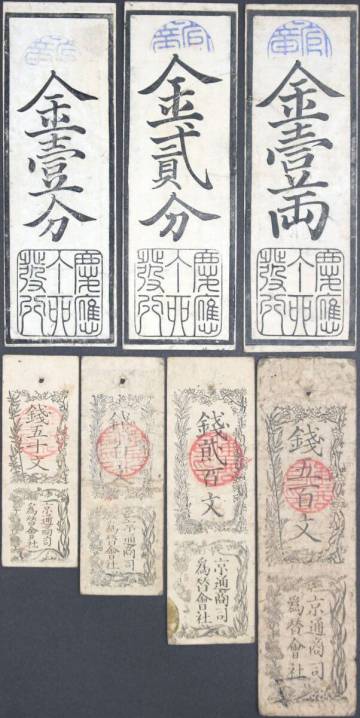 金壹分
慶應
發行
金貳分
慶應
發行
金壹両
慶應
發行
錢五十文
京通商司
為替會社
百文
京通商司
為替會社
錢貳百文
京通商司
為替會社
錢五百文
京通商司
為替會社